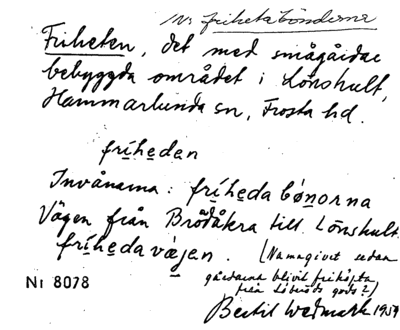 Nr frihetabönderna
Friheten, det med smågårdar
bebyggda området i Lönshult,
Hammarlunda sn, Frosta hd.
fríheden
Invånarna: fríheda bǿnorna
Vägen från Brödåkra till Lönshult
fríheda væjen. (Namngivet sedan
gårdarna blivit friköpta
från Löberöds gods?)
Nr 8078
Bertil Wedmark 1954